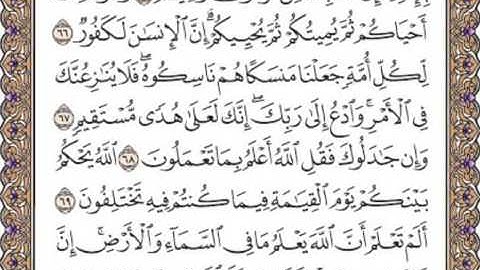 أَحْيَاكُمْ ثُمَّ يُمِيتُكُمْ ثُمَّ يُحْيِيكُمْ ۗ إِنَّ ٱلْإِنسَـٰنَ لَكَفُورٌ ٦٦
لِّكُلِّ أُمَّةٍ جَعَلْنَا مَنسَكًا هُمْ نَاسِكُوهُ ۖ فَلَا يُنَـٰزِعُنَّكَ
فِى ٱلْأَمْرِ ۚ وَٱدْعُ إِلَىٰ رَبِّكَ ۖ إِنَّكَ لَعَلَىٰ هُدًى مُّسْتَقِيمٍ ٦٧
وَإِن جَـٰدَلُوكَ فَقُلِ ٱللَّهُ أَعْلَمُ بِمَا تَعْمَلُونَ ٦٨ ٱللَّهُ يَحْكُمُ
بَيْنَكُمْ يَوْمَ ٱلْقِيَـٰمَةِ فِيمَا كُنتُمْ فِيهِ تَخْتَلِفُونَ ٦٩
أَلَمْ تَعْلَمْ أَنَّ ٱللَّهَ يَعْلَمُ مَا فِى ٱلسَّمَآءِ وَٱلْأَرْضِ ۗ إِنَّ